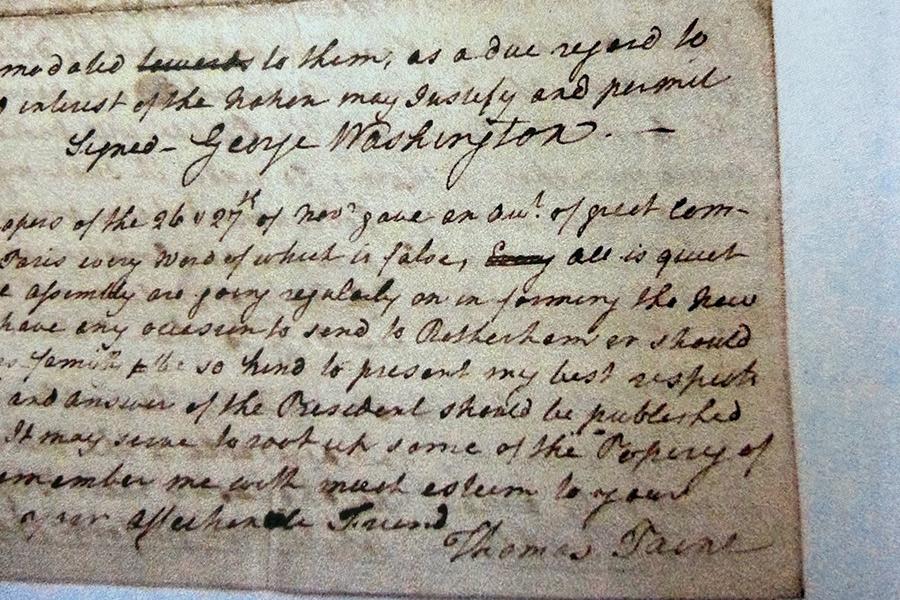 modated towards to them, as a due regard to
interest of the Nation may Justify and permit
Signed - George Washington. -
apers of the 26 & 27th of Novr gave an acct. of great Com-
Paris every word of which is false, Every all is quiet
assembly are going regularly on in forming the New
have any occasion to send to Rotherham or should
family to be so kind to present my best respects
and answer of the President should be published
It may serve to root up some of the Popery of
remember me with much esteem to your
your affectionate Friend
Thomas Paine